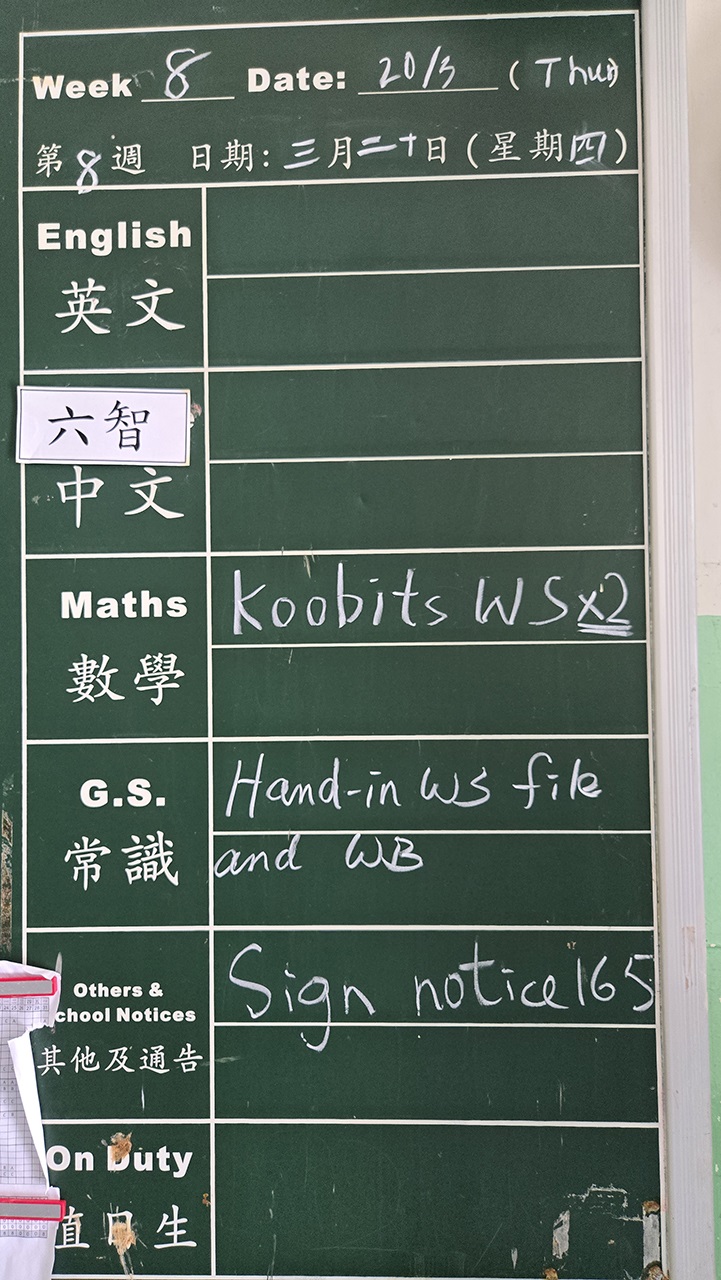 Week 8 Date: 20/3 (Thur)
第8週 日期: 三月二十日(星期四)
English
英文
六智
中文
Maths
Koobits WSx2
數學
G.S.
Hand-in WS file
常識
and WB
Others &
chool Notices
Sign notice 165
其他及通告
On Duty
值日生